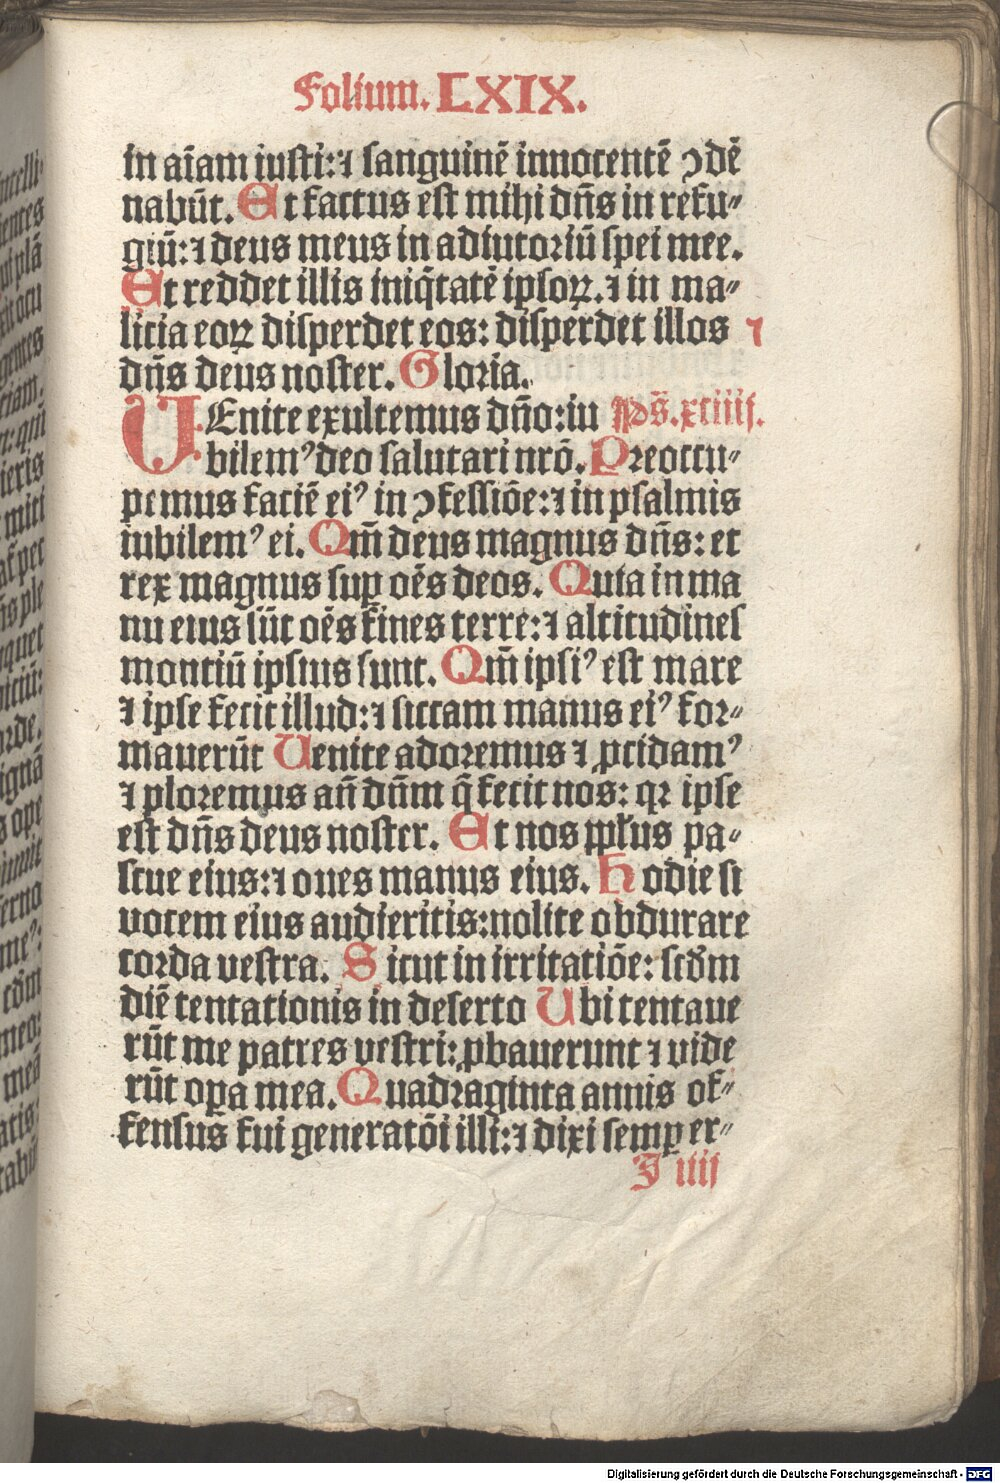 Folium. LXIX.
in aīam iusti: ⁊ sanguinē innocentē ꝯdē
nabūt. Et factus est mihi dn̄s in refu⸗
giū: ⁊ deus meus in adiutoriū spei mee.
Et reddet illis iniq̄tatē ipsoꝝ. ⁊ in ma⸗
licia eoꝝ disperdet eos: disperdet illos ⁊
dn̄s deus noster. Gloria.
VEnite exultemus dn̄o: iu Ps̄. xciiij.
bilemꝰ deo salutari nrō. Preoccu⸗
pemus faciē eiꝰ in ꝯfessiōe: ⁊ in psalmis
iubilemꝰ ei. Qm̄ deus magnus dn̄s: et
rex magnus suꝑ oēs deos. Quia in ma
nu eius sūt oēs fines terre: ⁊ altitudines
montiū ipsius sunt. Qm̄ ipsiꝰ est mare
⁊ ipse fecit illud: ⁊ siccam manus eiꝰ for⸗
mauerūt Uenite adoremus ⁊ ꝓcidamꝰ
⁊ ploremus an̄ dn̄m q̄ fecit nos: qꝛ ipse
est dn̄s deus noster. Et nos ppłus pa⸗
scue eius: ⁊ oues manus eius. Hodie si
vocem eius audieritis: nolite obdurare
corda vestra. Sicut in irritatiōe: scd̄m
diē tentationis in deserto Ubi tentaue
rūt me patres vestri: ꝓbauerunt ⁊ vide
rūt oꝑa mea. Quadraginta annis of⸗
fensus fui generatōi illi: ⁊ dixi semꝑ er⸗
J iiij
Digitalisierung gefördert durch die Deutsche Forschungsgemeinschaft - DFG